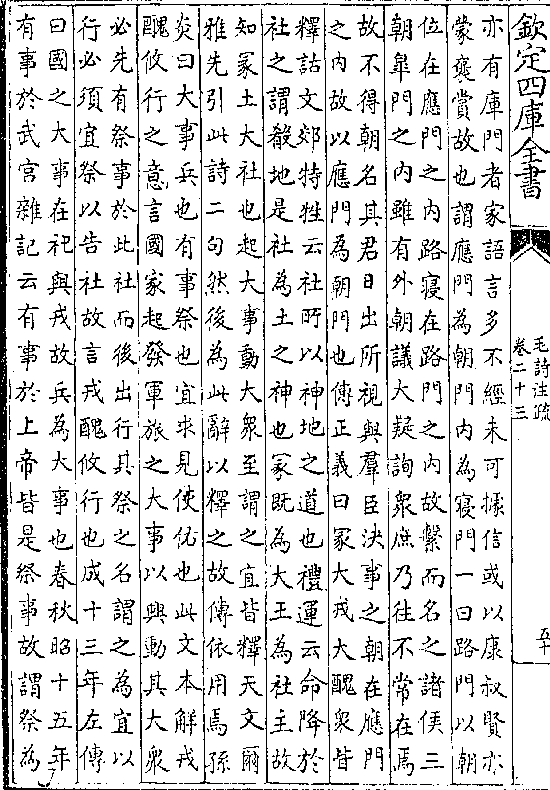 欽定四庫全書
毛詩注疏
卷二十三
五十
亦有庫門者家語言多不經未可據信或以康叔賢亦
蒙襃賞故也謂應門為朝門内為寢門一曰路門以朝
位在應門之内路寢在路門之内故繫而名之諸侯三
朝臯門之内雖有外朝議大疑詢衆庶乃往不常在焉
故不得朝名其君日出所視與羣臣決事之朝在應門
之内故以應門為朝門也傳正義曰冢大戎大醜衆皆
釋詁文郊特牲云社所以神地之道也禮運云命降於
社之謂殽地是社為土之神也冢既為大王為社主故
知冢土大社也起大事動大衆至謂之宜皆釋天文爾
雅先引此詩二句然後為此辭以釋之故傳依用焉孫
炎曰大事兵也有事祭也宜求見使佑也此文本解戎
醜攸行之意言國家起發軍旅之大事以興動其大衆
必先有祭事於此社而後出行其祭之名謂之為宜以
行必須宜祭以告社故言戎醜攸行也成十三年左傳
曰國之大事在祀與戎故兵為大事也春秋昭十五年
有事於武宫雜記云有事於上帝皆是祭事故謂祭為